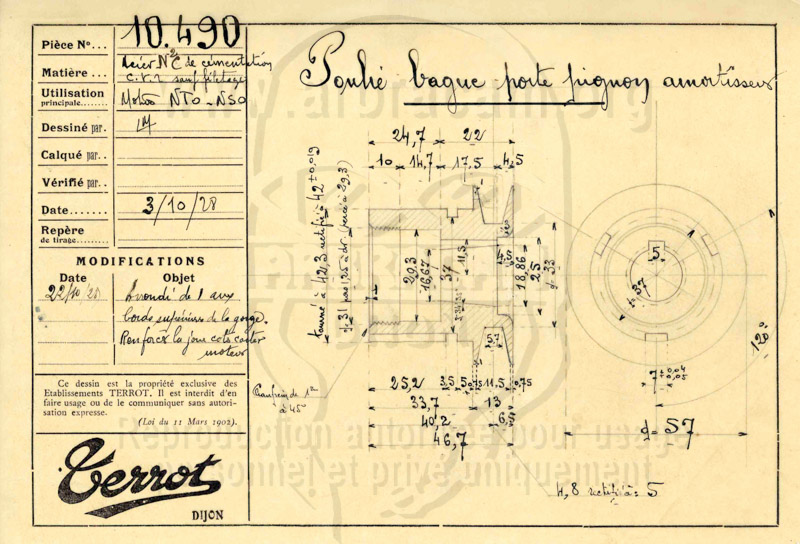 Pièce N°... 10.490
Matière... Acier N°2C de cémentation
C.V.2 sauf filetage
Utilisation
principale........ Motos NTO - NSO
Dessiné par.
Calqué par...
Vérifié par..
Date....... 3/10/28
Repère
de tirage........
MODIFICATIONS
Date Objet
22/10/28 Arrondi de 1 aux
bords supérieurs de la gorge.
Renforcé la joue coté carter
moteur
Ce dessin est la propriété exclusive des
Etablissements TERROT. Il est interdit d'en
faire usage ou de le communiquer sans autori-
sation expresse.
(Loi du 11 Mars 1902).
Terrot
DIJON
Poulie bague porte pignon amortisseur
24,7 22
10 14,7 17,5 4,5
tourné à 42,3 rectifié à 42 ±0,019
29,3
16,67
37
11,5
4,5
18,86
25
d=33
57
25,2 3,5 5 11,5 0,75
33,7 13
40,2 6,5
46,7
Chanfrein de 1
à 45
5
37
120°
7 ±0,04
0,05
d=57
4,8 rectifié à = 5
www.arbracam.org
Reproduction autorisée pour usage
personnel et privé uniquement